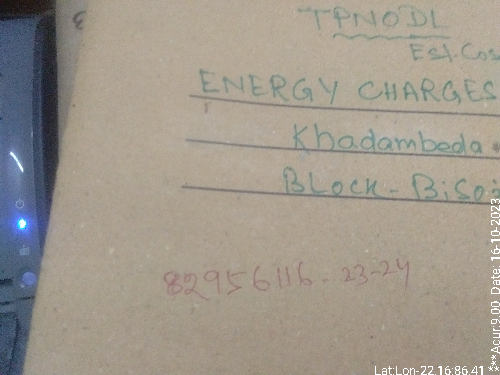 TPNODL
Est. Cos
ENERGY CHARGES
Khadambeda.
BLOCK - Bisoi
82956116 - 23-24
Lat:Lon-22.16:86.41 ***Acur:9.00 Date: 16-10-2023